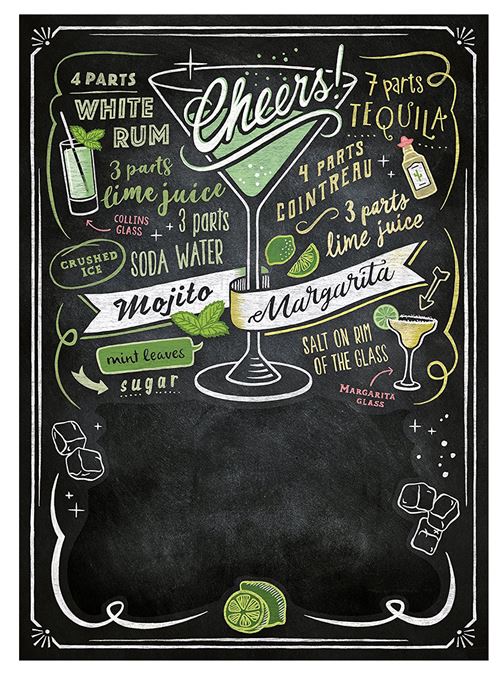 Cheers!
4 PARTS
WHITE
RUM
3 parts
lime juice
COLLINS
GLASS
+ 3 parts
SODA WATER
CRUSHED
ICE
Mojito
mint leaves
sugar
7 parts
TEQUILA
4 PARTS
COINTREAU +
3 parts
lime juice
Margarita
SALT ON RIM
OF THE GLASS
MARGARITA
GLASS